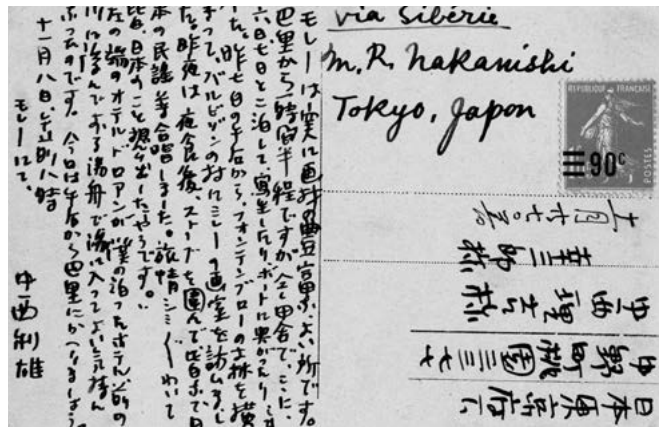 via Sibérie
M. R. Nakanishi
Tokyo, Japon
REPUBLIQUE FRANÇAISE
90c
POSTES
日本東京府下
中野町桃園三三七七
中西理吉様
モレーは実に画材の豊富なよい所です。
巴里から一時間半程ですが全く田舎で、ここに、
六日七日と二泊して寫生したりボートに興がったりしま
した。昨七日の午后から、フォンテンブローの森を横
ぎって、バルビゾンの村にミレーの画室を訪ふまし
た。昨夜は夜食後、ストーブを圍んで皆さんで日
本の民謡等合唱しました。旅情シミ〲わいて
皆、日本のこと想ひ出したやうです。
左の端のオテルドロアンが僕の泊ったホテル、前の
川に浮んでおる湯舟で湯に入ってよい気持ん
なったのです。今日は午后から巴里にかへりましょう
十一月八日、午前八時
モレーにて、
中西利雄